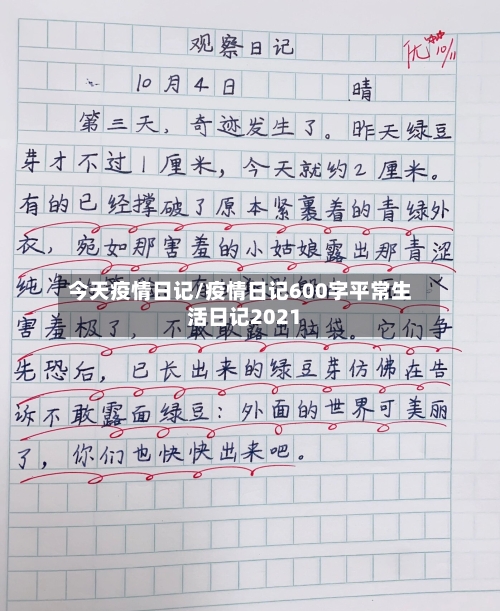 观察日记
优 10/11
10月4日 晴
第三天，奇迹发生了。昨天绿豆
芽才不过1厘米，今天就约2厘米。
有的已经撑破了原本紧裹着的青绿外
衣，宛如那害羞的小姑娘露出那青涩
纯净
今天疫情日记/疫情日记600字平常生
活日记2021
害羞极了，不敢敢露出脑袋。它们争
先恐后，已长出来的绿豆芽仿佛在告
诉不敢露面绿豆：外面的世界可美丽
了，你们也快快出来吧。